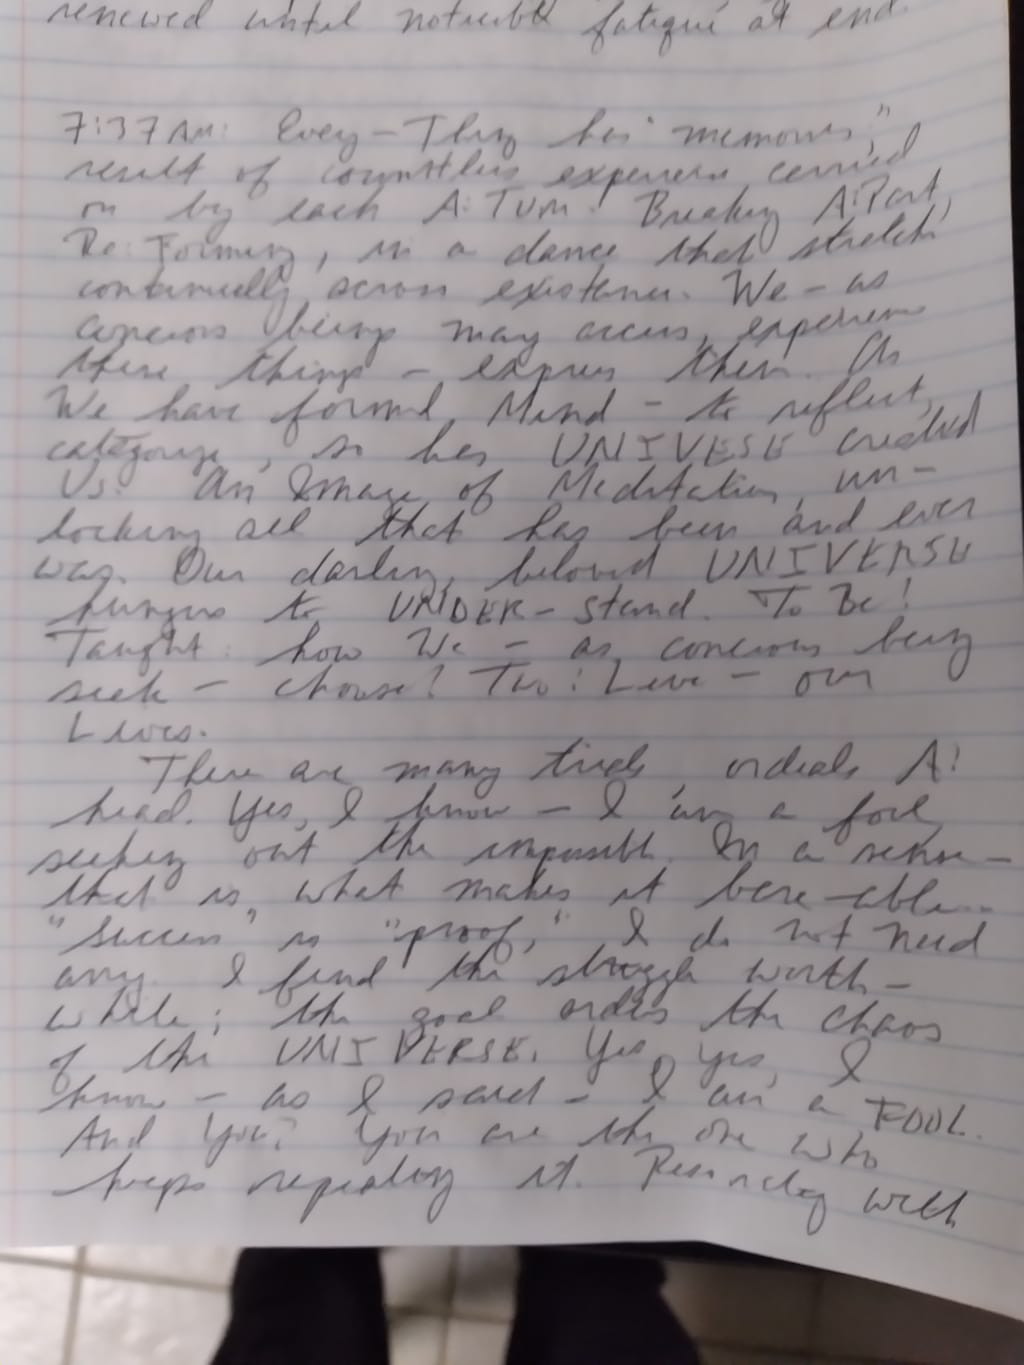 renewed until noticeable fatigue at end.
7:37 AM: Every-Thing has "memories,"
result of countless experiences carried
on by each A:TUM! Breaking A:Part,
Re:Forming, in a dance that stretch
continually across existence. We - as
concious beings may access, experience
these things - express them. As
We have formed Mind - to reflect,
categorize, so has UNIVESE created
Us. An Image of Meditation, un-
locking all that has been and ever
was. Our darling, beloved UNIVERSE
hungers to UNDER-stand. To Be!
Taught: how We - as concious being
seek - choose! To: Live - our
Lives.
There are many trials, ordeals A:
head. Yes, I know - I am a fool
seeking out the impossible. In a sense -
that is what makes it bere-able...
"Success" is "proof," I do not need
any. I find the struggle worth-
while; the goal orders the chaos
of the UNIVERSE. Yes, yes, I
know - as I said - I am a FOOL.
And You? You are the one who
keeps repeating it. with